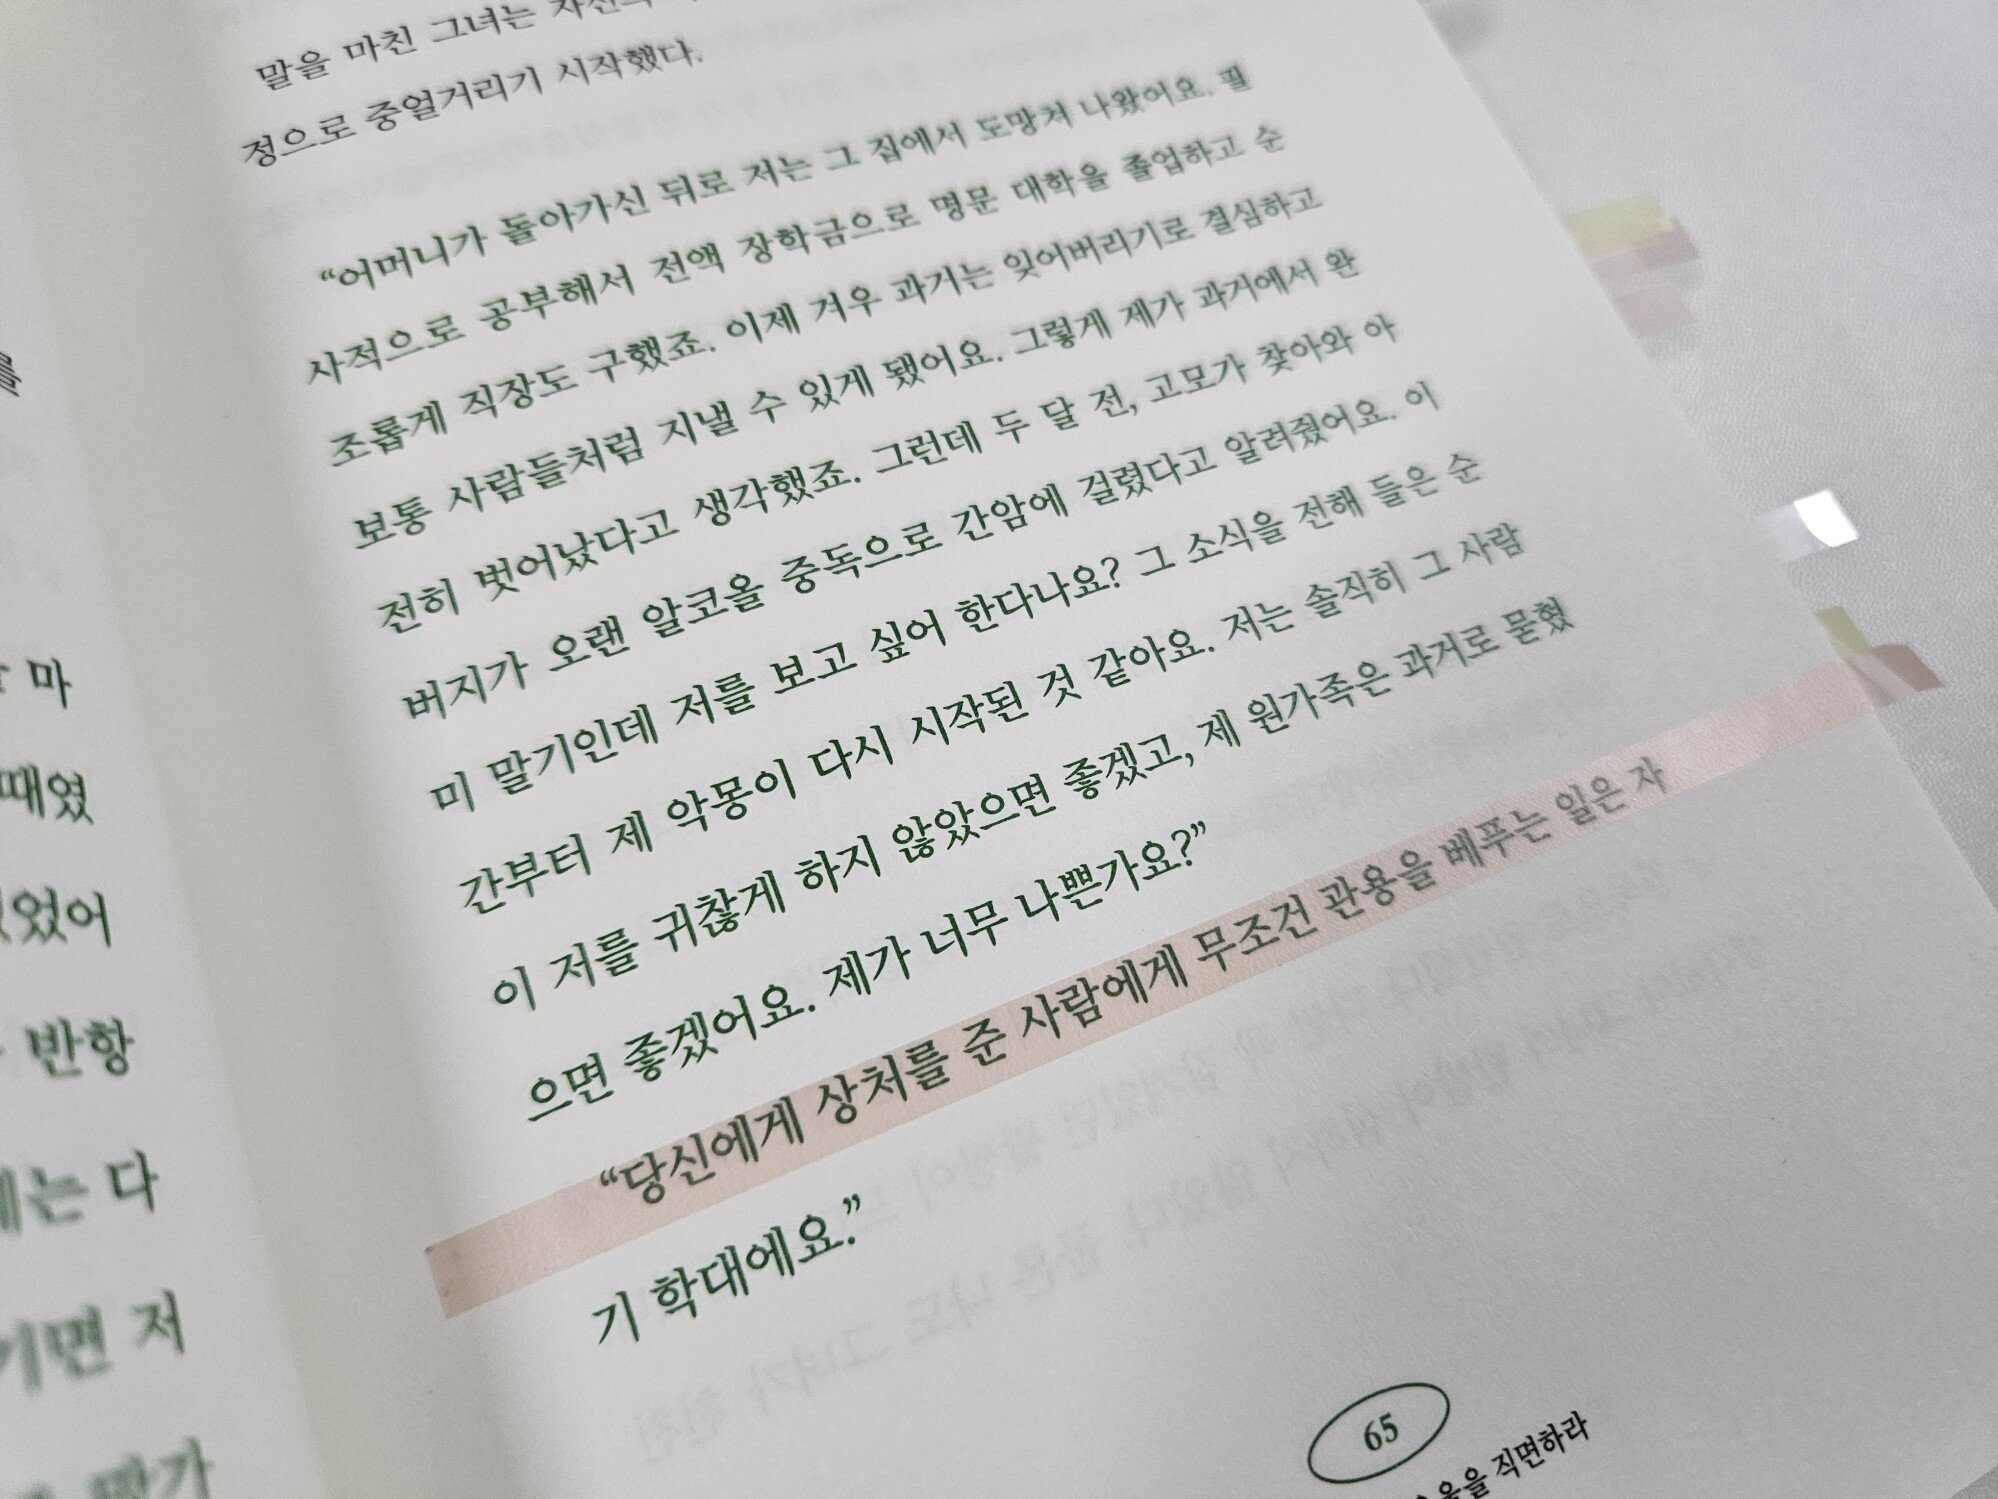 를
마
때였
었어
반항
는 다
기면 저
말을 마친 그녀는
정으로 중얼거리기 시작했다.
“어머니가 돌아가신 뒤로 저는 그 집에서 도망쳐 나왔어요. 필
사적으로 공부해서 전액 장학금으로 명문 대학을 졸업하고 순
조롭게 직장도 구했죠. 이제 겨우 과거는 잊어버리기로 결심하고
보통 사람들처럼 지낼 수 있게 됐어요. 그렇게 제가 과거에서 완
전히 벗어났다고 생각했죠. 그런데 두 달 전, 고모가 찾아와 아
버지가 오랜 알코올 중독으로 간암에 걸렸다고 알려줬어요. 이
미 말기인데 저를 보고 싶어 한다나요? 그 소식을 전해 들은 순
간부터 제 악몽이 다시 시작된 것 같아요. 저는 솔직히 그 사람
이 저를 귀찮게 하지 않았으면 좋겠고, 제 원가족은 과거로 묻혔
으면 좋겠어요. 제가 너무 나쁜가요?”
“당신에게 상처를 준 사람에게 무조건 관용을 베푸는 일은 자
기 학대에요.”
65
직면하라